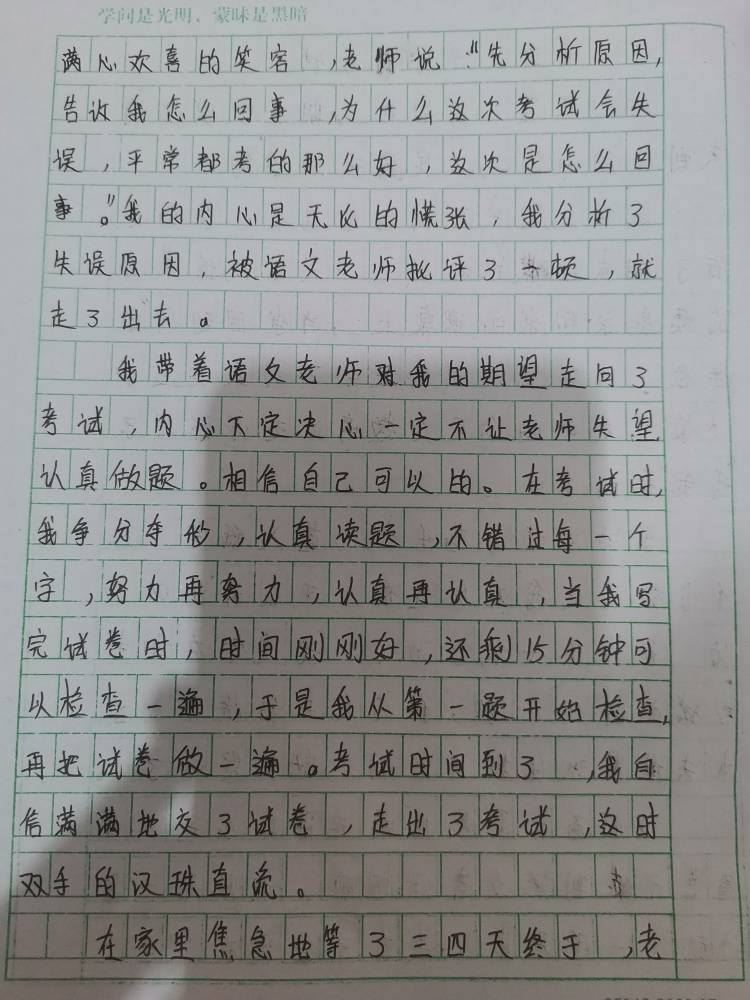 学问是光明，蒙昧是黑暗
满心欢喜的笑容，老师说："先分析原因，
告诉我怎么回事，为什么这次考试会失
误，平常都考的那么好，这次是怎么回
事。"我的内心是无比的慌张，我分析了
失误原因，被语文老师批评了一顿，就
走了出去。
我带着语文老师对我的期望走向了
考试，内心下定决心一定不让老师失望
认真做题。相信自己可以的。在考试时，
我争分夺秒，认真读题，不错过每一个
字，努力再努力，认真再认真，当我写
完试卷时，时间刚刚好，还剩15分钟可
以检查一遍，于是我从第一题开始检查，
再把试卷做一遍。考试时间到了，我自
信满满地交了试卷，走出了考试，这时
双手的汉珠直流。
在家里焦急地等了三四天终于，老